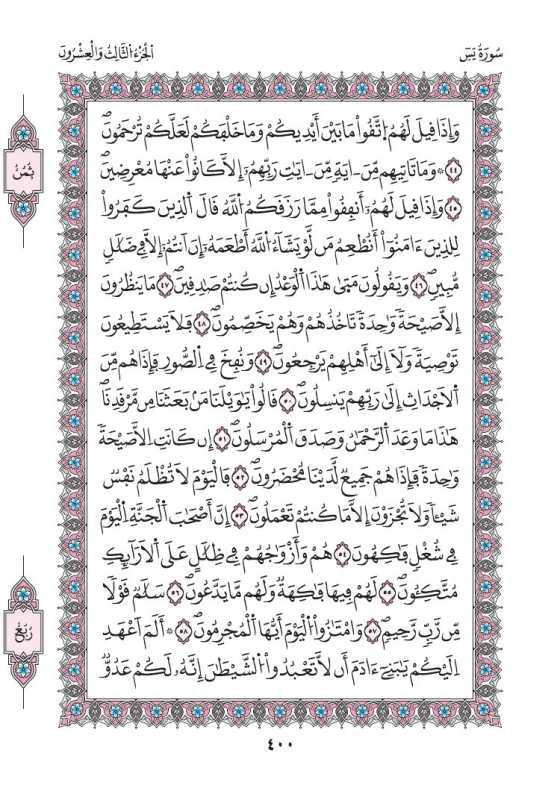 سُورَةُ يَسٓ
اَلْجُزْءُ الثَّالِثُ وَالْعِشْرُونَ
وَإِذَا قِيلَ لَهُمُ اُتَّقُواْ مَا بَيْنَ أَيْدِيكُمْ وَمَا خَلْفَكُمْ لَعَلَّكُمْ تُرْحَمُونَۖ
٤٤ ۞وَمَا تَاتِيهِم مِّنَ ـ ايَةٖ مِّنَ ـ ايَٰتِ رَبِّهِمُۥٓ إِلَّا كَانُواْ عَنْهَا مُعْرِضِينَۖ
٤٥ وَإِذَا قِيلَ لَهُمُۥٓ أَنفِقُواْ مِمَّا رَزَقَكُمُ اُللَّهُ قَالَ اَلذِينَ كَفَرُواْ
لِلذِينَ ءَامَنُوٓاْ أَنُطْعِمُ مَن لَّوْ يَشَآءُ اُللَّهُ أَطْعَمَهُۥٓ إِنَ اَنتُمُۥٓ إِلَّا فِے ضَلَٰلٖ
مُّبِينٖۖ ٤٦ وَيَقُولُونَ مَتَىٰ هَٰذَا اَلْوَعْدُ إِن كُنتُمْ صَٰدِقِينَۖ ٤٧ مَا يَنظُرُونَ
إِلَّا صَيْحَةٗ وَٰحِدَةٗ تَاخُذُهُمْ وَهُمْ يَخَصِّمُونَۖ ٤٨ فَلَا يَسْتَطِيعُونَ
تَوْصِيَةٗ وَلَآ إِلَىٰٓ أَهْلِهِمْ يَرْجِعُونَۖ ٤٩ وَنُفِخَ فِے اِلصُّورِ فَإِذَا هُم مِّنَ
اَلَاجْدَاثِ إِلَىٰ رَبِّهِمْ يَنسِلُونَۖ ٥٠ قَالُواْ يَٰوَيْلَنَا مَنۢ بَعَثَنَا مِن مَّرْقَدِنَاۖ
هَٰذَا مَا وَعَدَ اَلرَّحْمَٰنُ وَصَدَقَ اَلْمُرْسَلُونَۖ ٥١ إِن كَانَتِ اِلَّا صَيْحَةٗ
وَٰحِدَةٗ فَإِذَا هُمْ جَمِيعٞ لَّدَيْنَا مُحْضَرُونَۖ ٥٢ فَالْيَوْمَ لَا تُظْلَمُ نَفْسٞ
شَيْـٔاٗ وَلَا تُجْزَوْنَ إِلَّا مَا كُنتُمْ تَعْمَلُونَۖ ٥٣ إِنَّ أَصْحَٰبَ اَلْجَنَّةِ اِلْيَوْمَ
فِے شُغْلٖ فَٰكِهُونَۖ ٥٤ هُمْ وَأَزْوَٰجُهُمْ فِے ظِلَٰلٍ عَلَى اَلَارَآئِكِ
مُتَّكِـُٔونَۖ ٥٥ لَهُمْ فِيهَا فَٰكِهَةٞ وَلَهُم مَّا يَدَّعُونَۖ ٥٦ سَلَٰمٞ قَوْلٗا
مِّن رَّبّٖ رَّحِيمٖۖ ٥٧ وَامْتَٰزُواْ اُلْيَوْمَ أَيُّهَا اَلْمُجْرِمُونَۖ ٥٨ ۞أَلَمَ اَعْهَدِ
اِلَيْكُمْ يَٰبَنِےٓ ءَادَمَ أَن لَّا تَعْبُدُواْ اُلشَّيْطَٰنَ إِنَّهُۥ لَكُمْ عَدُوّٞ
ثُمُنُ
رُبُعُ
٤٠٠